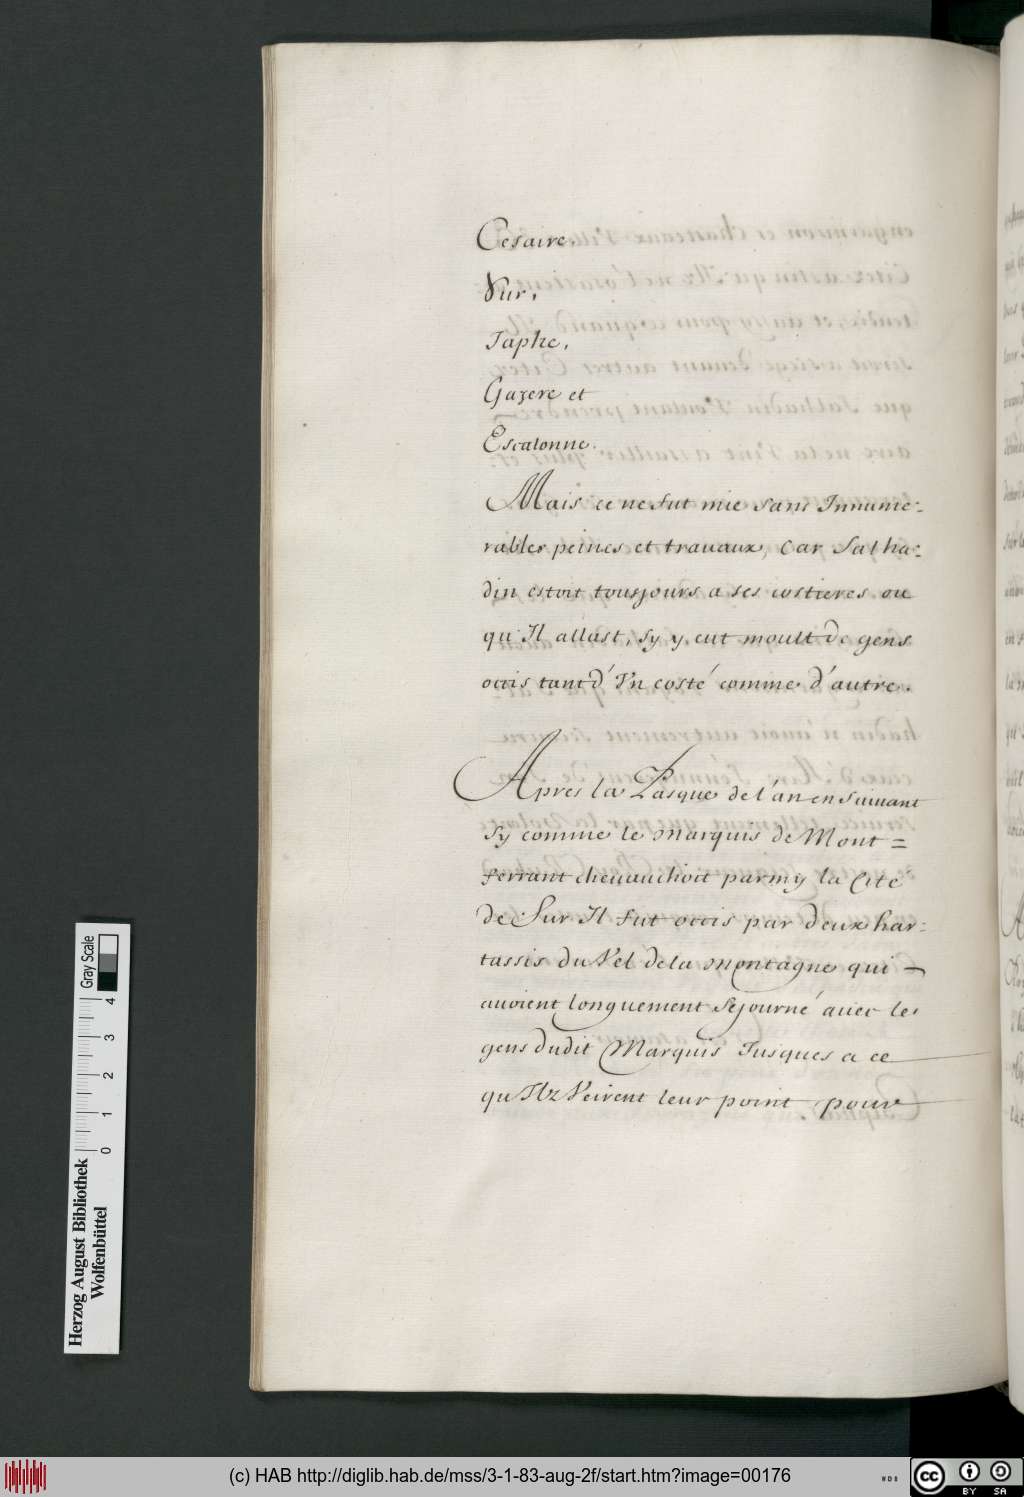 Cesaire
Vur,
Japhe,
Gazere et
Escalonne.
Mais ce ne fut mie sans Innume-
rables peines et travaux, Car Salha-
din estoit tousjours a ses costieres ou
qu'Il allast, sy y eut moult de gens
occis tant d'Vn costé comme d'autre.
Apres la Pasque de l'an ensuiuant
sy comme le Marquis de Mont=
ferrant cheuauchoit parmy la Cité
de Sur Il fut occis par deux har-
tassis du Vel dela montagne qui
auoient longuement sejourné auec les
gens dudit Marquis Jusques a ce
qu'Ilz Veirent leur point pour
Herzog August Bibliothek
Wolfenbüttel
0 1 2 3 4
Gray Scale
(c) HAB http://diglib.hab.de/mss/3-1-83-aug-2f/start.htm?image=00176
WDB
cc BY SA